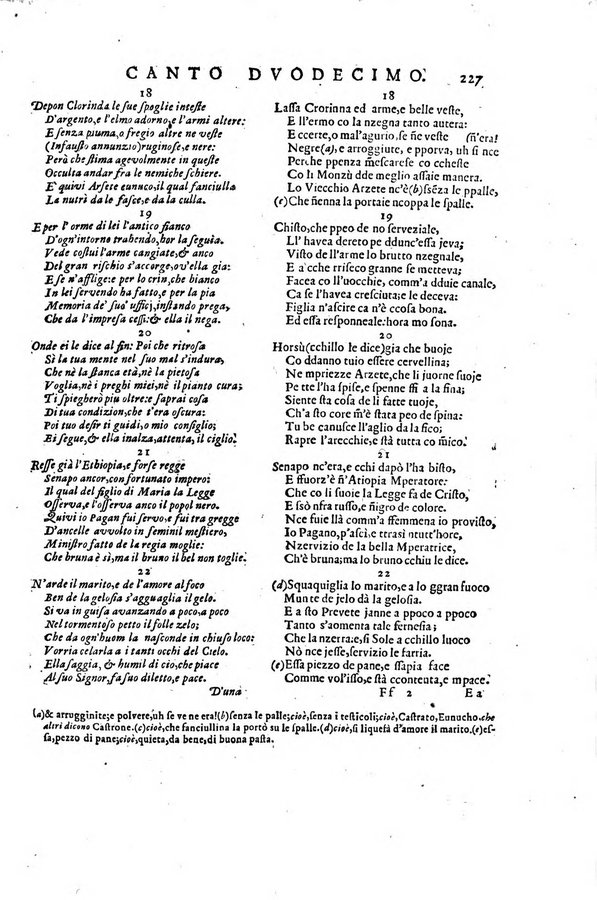 CANTO DVODECIMO. 227
18
Depon Clorinda le sue spoglie inteste
D'argento, e l'elmo adorno, e l'armi altere:
E senza piuma, o fregio altre ne veste
(Infausto annunzio) ruginose, e nere:
Però che stima agevolmente in queste
Occulta andar fra le nemiche schiere.
E' quivi Arsete eunuco, il qual fanciulla
La nutrì da le fasce, e da la culla.
19
E per l'orme di lei l'antico fianco
D'ogn'intorno trahendo, hor la seguìa.
Vede costui l'arme cangiate, & anco
Del gran rischio s'accorge, ov'ella gìa:
E se n'afflige: e per lo crin, che bianco
In lei servendo ha fatto, e per la pia
Memoria de' suo' uffici, instando prega,
Che da l'impresa cessi: & ella il nega.
20
Onde ei le dice al fin: Poi che ritrosa
Sì la tua mente nel suo mal s'indura,
Che nè la stanca età, nè la pietosa
Voglia, nè i preghi miei, nè il pianto cura;
Ti spiegherò più oltre: e saprai cosa
Di tua condizion, che t'era oscura:
Poi tuo desir ti guidi, o mio consiglio;
Ei segue, & ella inalza, attenta, il ciglio.
21
Resse già l'Ethiopia, e forse regge
Senapo ancor, con fortunato impero:
Il qual del figlio di Maria la Legge
Osserva, e l'osserva anco il popol nero.
Quivi io Pagan fui servo, e fui tra gregge
D'ancelle avvolto in feminil mestiero,
Ministro fatto de la regia moglie:
Che bruna è sì, ma il bruno il bel non toglie.
22
N'arde il marito, e de l'amore al foco
Ben de la gelosia s'agguaglia il gelo.
Si va in guisa avanzando a poco, a poco
Nel tormentoso petto il folle zelo;
Che da ogn'huom la nasconde in chiuso loco:
Vorria celarla a i tanti occhi del Cielo.
Ella saggia, & humil di ciò, che piace
Al suo Signor, fa suo diletto, e pace.
D'una
18
Lassa Crorinna ed arme, e belle veste,
E ll'ermo co la nzegna tanto autera:
E ccerte, o mal'agurio, se ñe veste (ñ'era!
Negre (a), e arroggiute, e pporva, uh si nce
Perche ppenza m̃escarese co ccheste
Co li Monzù dde meglio assaie manera.
Lo Vecchio Arzete nc'è (b) sẽza le ppalle,
(c) Che ñenna la portaie ncoppa le spalle.
19
Chisto, che ppeo de no serveziale,
Ll' havea dereto pe ddunc'essa jeva;
Visto dell'arme lo brutto nzegnale,
E a cche rriseco granne se metteva;
Facea co ll'uocchie, comm'a dduie canale,
Ca se l'havea cresciuta; e le deceva:
Figlia n'ascire ca n'è ccosa bona.
Ed essa responneale: hora mo sona.
20
Horsù (cchillo le dice) gia che buoje
Co ddanno tuio essere cervellina;
Ne mpriezze Arzete, che li juorne suoje
Pe tte l'ha spise, e spenne ffi a la fina;
Siente sta cosa de li fatte tuoje,
Ch'a sto core m̃'è stata peo de spina:
Tu be canusce ll'aglio da la fico;
Rapre l'arecchie, e stà tutta co m̃ico.
21
Senapo nc'era, e cchi dapò l'ha bisto,
E ffuorz'è ñ'Atiopia Mperatore:
Che co li suoie la Legge fa de Cristo,
E ssò nfra russo, e ñigro de colore.
Nce fuie llà comm'a ffemmena io provisto,
Io Pagano, p'asci, e ttrasì ntutt'hore,
Nzervizio de la bella Mperatrice,
Ch'è bruna; ma lo bruno cchiu lle dice.
22
(d) Squaquiglia lo marito, e a lo ggran fuoco
Munte de jelo dà la gelosia.
E a sto Prevete janne a ppoco a ppoco
Tanto s'aomenta tale fernesia;
Che la nzerra: e, si Sole a cchillo luoco
Nò nce jesse, servizio le farria.
(e) Essa piezzo de pane, e ssapia face
Comme vol'isso, e stà ccontenta, e mpace.
Ff 2 Ea
(a) & arrugginite; e polvere, uh se ve ne era! (b) senza le palle; cioè, senza i testicoli; Castrato, Eunucho. che
altri dicono Castrone. (c) cioè, che fanciullina la portò su le spalle. (d) cioè, si liquefà d'amore il marito. (e) es-
sa, pezzo di pane; cioè, quieta, da bene, di buona pasta.